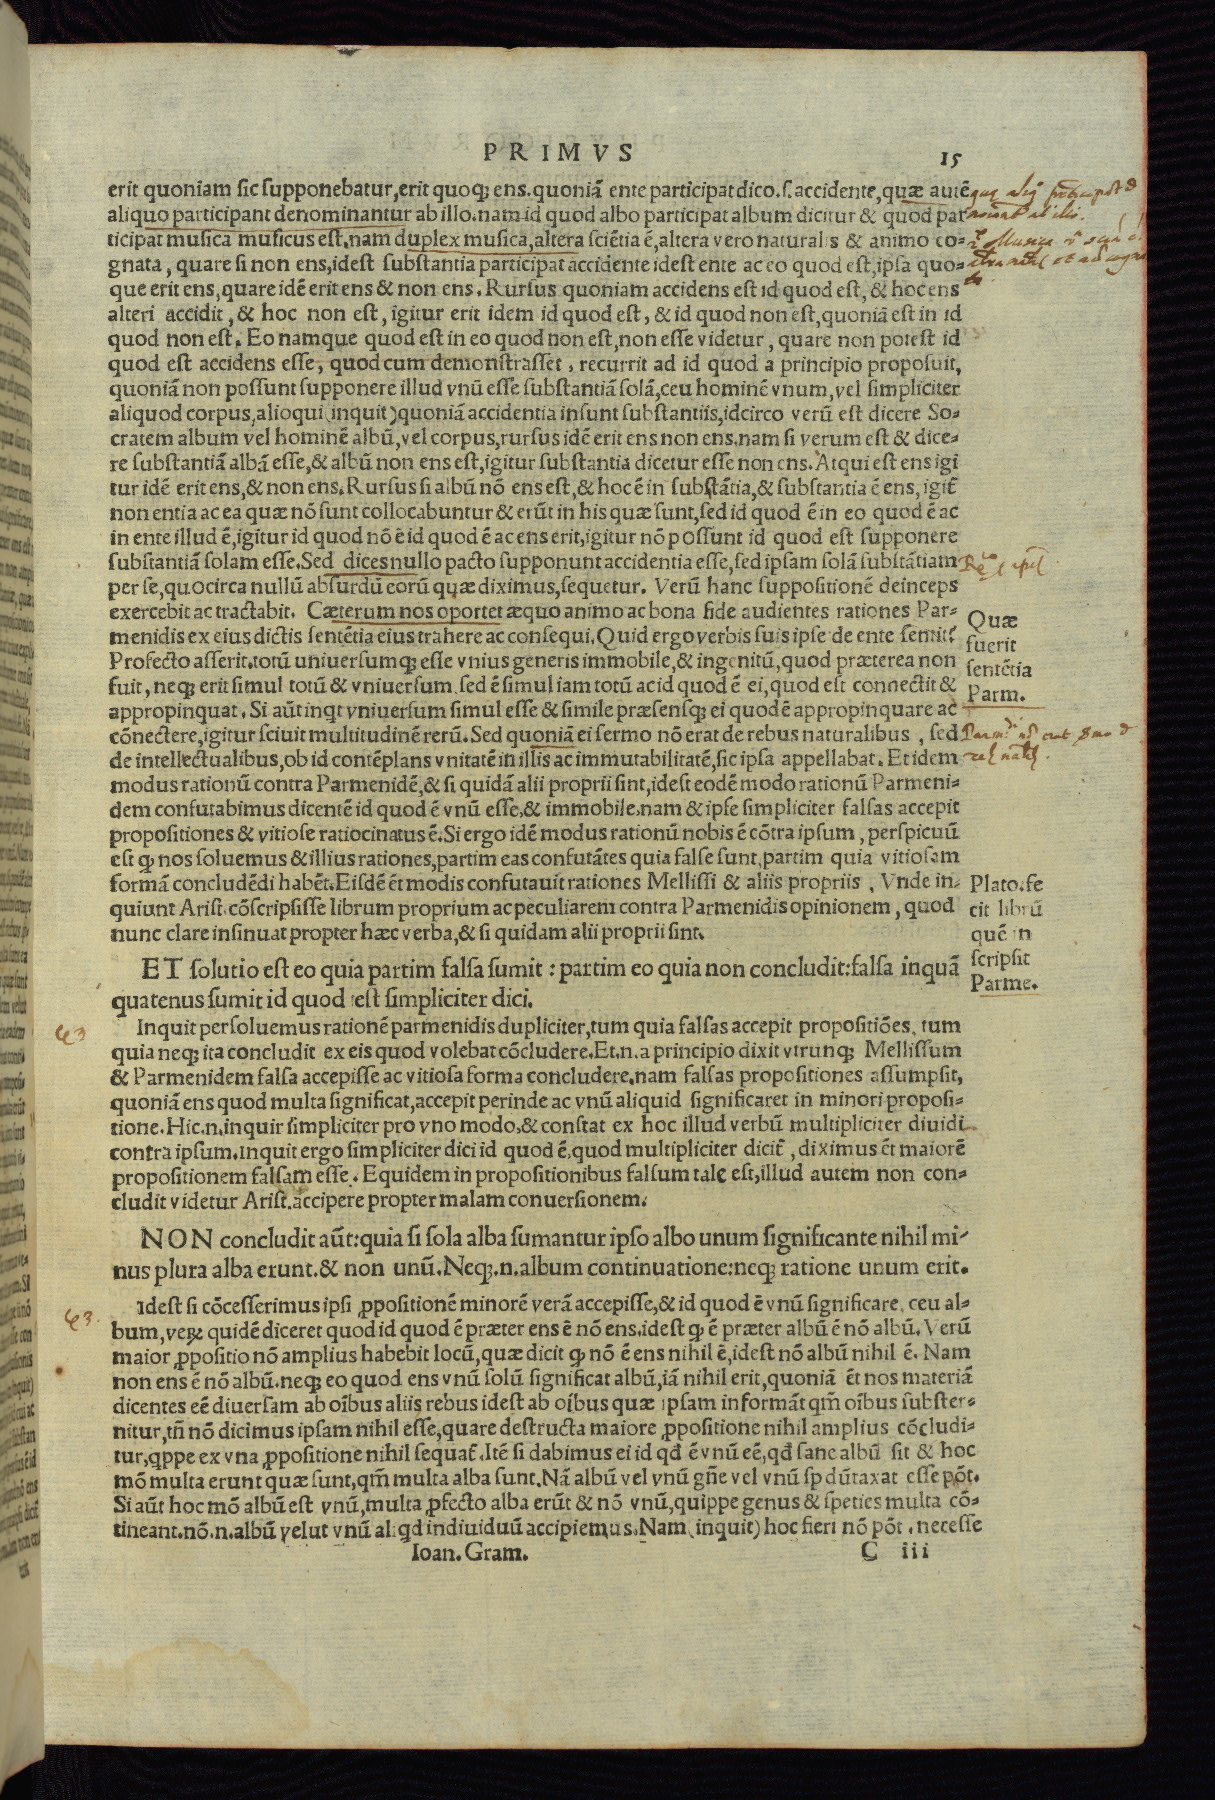 PRIMVS
15
erit quoniam sic supponebatur, erit quoq; ens. quoniā ente participat dico. s. accidente, quæ autē
aliquo participant denominantur ab illo. nam id quod albo participat album dicitur & quod par
ticipat musica musicus est. nam duplex musica, altera sciētia ē, altera vero naturalis & animo co-
gnata, quare si non ens, idest substantia participat accidente idest ente ac eo quod est, ipsa quo-
que erit ens, quare idē erit ens & non ens. Rursus quoniam accidens est id quod est, & hoc ens
alteri accidit, & hoc non est, igitur erit idem id quod est, & id quod non est, quoniā est in id
quod non est. Eo namque quod est in eo quod non est, non esse videtur, quare non potest id
quod est accidens esse, quod cum demonstrasset, recurrit ad id quod a principio proposuit,
quoniā non possunt supponere illud vnū esse substantiā solā, ceu hominē vnum, vel simpliciter
aliquod corpus, alioqui (inquit) quoniā accidentia insunt substantiis, idcirco verū est dicere So-
cratem album vel hominē albū, vel corpus, rursus idē erit ens non ens. nam si verum est & dice-
re substantiā albā esse, & albū non ens est, igitur substantia dicetur esse non ens. Atqui est ens igi
tur idē erit ens, & non ens. Rursus si albū nō ens est, & hoc ē in substātia, & substantia ē ens, igit̄
non entia ac ea quæ nō sunt collocabuntur & erūt in his quæ sunt, sed id quod ē in eo quod ē ac
in ente illud ē, igitur id quod nō ē id quod ē ac ens erit, igitur nō possunt id quod est supponere
substantiā solam esse. Sed dices nullo pacto supponunt accidentia esse, sed ipsam solā substātiam
per se, quocirca nullū absurdū eorū quæ diximus, sequetur. Verū hanc suppositionē deinceps
exercebit ac tractabit. Cæterum nos oportet æquo animo ac bona fide audientes rationes Par-
menidis ex eius dictis sentētia eius trahere ac consequi, Quid ergo verbis suis ipse de ente sentit?
Profecto asserit. totū uniuersumq; esse vnius generis immobile, & ingenitū, quod præterea non
fuit, neq; erit simul totū & vniuersum. sed ē simul iam totū ac id quod ē ei, quod est connectit &
appropinquat. Si aūt inqt vniuersum simul esse & simile præsensq; ei quod ē appropinquare ac
cōnectere, igitur sciuit multitudinē rerū. Sed quoniā ei sermo nō erat de rebus naturalibus, sed
de intellectualibus, ob id contēplans vnitatē in illis ac immutabilitatē, sic ipsa appellabat. Et idem
modus rationū contra Parmenidē, & si quidā alii proprii sint, idest eodē modo rationū Parmeni-
dem confutabimus dicentē id quod ē vnū esse, & immobile. nam & ipse simpliciter falsas accepit
propositiones & vitiose ratiocinatus ē. Si ergo idē modus rationū nobis ē cōtra ipsum, perspicuū
est ꝙ nos soluemus & illius rationes, partim eas confutātes quia false sunt, partim quia vitiosam
formā concludēdi habēt. Eisdē ēt modis confutauit rationes Mellissi & aliis propriis, Vnde in-
quiunt Arist. cōscripsisse librum proprium ac peculiarem contra Parmenidis opinionem, quod
nunc clare insinuat propter hæc verba, & si quidam alii proprii sint.
Quæ
fuerit
sentētia
Parm.
Plato. fe
cit librū
quē in
scripsit
Parme.
ET solutio est eo quia partim falsa sumit: partim eo quia non concludit: falsa inquā
quatenus sumit id quod est simpliciter dici.
Inquit persoluemus rationē parmenidis dupliciter, tum quia falsas accepit propositiōes, tum
quia neq; ita concludit ex eis quod volebat cōcludere. Et. n. a principio dixit vtrunq; Mellissum
& Parmenidem falsa accepisse ac vitiosa forma concludere. nam falsas propositiones assumpsit,
quoniā ens quod multa significat, accepit perinde ac vnū aliquid significaret in minori proposi-
tione. Hic. n. inquir simpliciter pro vno modo, & constat ex hoc illud verbū multipliciter diuidi
contra ipsum. Inquit ergo simpliciter dici id quod ē, quod multipliciter dicit̄, diximus ēt maiorē
propositionem falsam esse. Equidem in propositionibus falsum tale est, illud autem non con-
cludit videtur Arist. accipere propter malam conuersionem.
NON concludit aūt: quia si sola alba sumantur ipso albo unum significante nihil mi-
nus plura alba erunt. & non unū. Neq;. n. album continuatione: neq; ratione unum erit.
Idest si cōcesserimus ipsi ꝓpositionē minorē verā accepisse, & id quod ē vnū significare, ceu al-
bum, veꝝ quidē diceret quod id quod ē præter ens ē nō ens. idest ꝙ ē præter albū ē nō albū. Verū
maior ꝓpositio nō amplius habebit locū, quæ dicit ꝙ nō ē ens nihil ē, idest nō albū nihil ē. Nam
non ens ē nō albū. neq; eo quod ens vnū solū significat albū, iā nihil erit, quoniā ēt nos materiā
dicentes eē diuersam ab oībus aliis rebus idest ab oībus quæ ipsam informāt qm̄ oībus subster-
nitur, tn̄ nō dicimus ipsam nihil esse, quare destructa maiore ꝓpositione nihil amplius cōcludi-
tur, qppe ex vna ꝓpositione nihil sequat̄. Itē si dabimus ei id qd̄ ē vnū eē, qd̄ sane albū sit & hoc
mō multa erunt quæ sunt, qm̄ multa alba sunt. Nā albū vel vnū gn̄e vel vnū sp̄ dūtaxat esse pōt.
Si aūt hoc mō albū est vnū, multa ꝓfecto alba erūt & nō vnū, quippe genus & speties multa cō-
tineant. nō. n. albū velut vnū aliqd indiuiduū accipiemus. Nam (inquit) hoc fieri nō pōt, necesse
Ioan. Gram. C iii